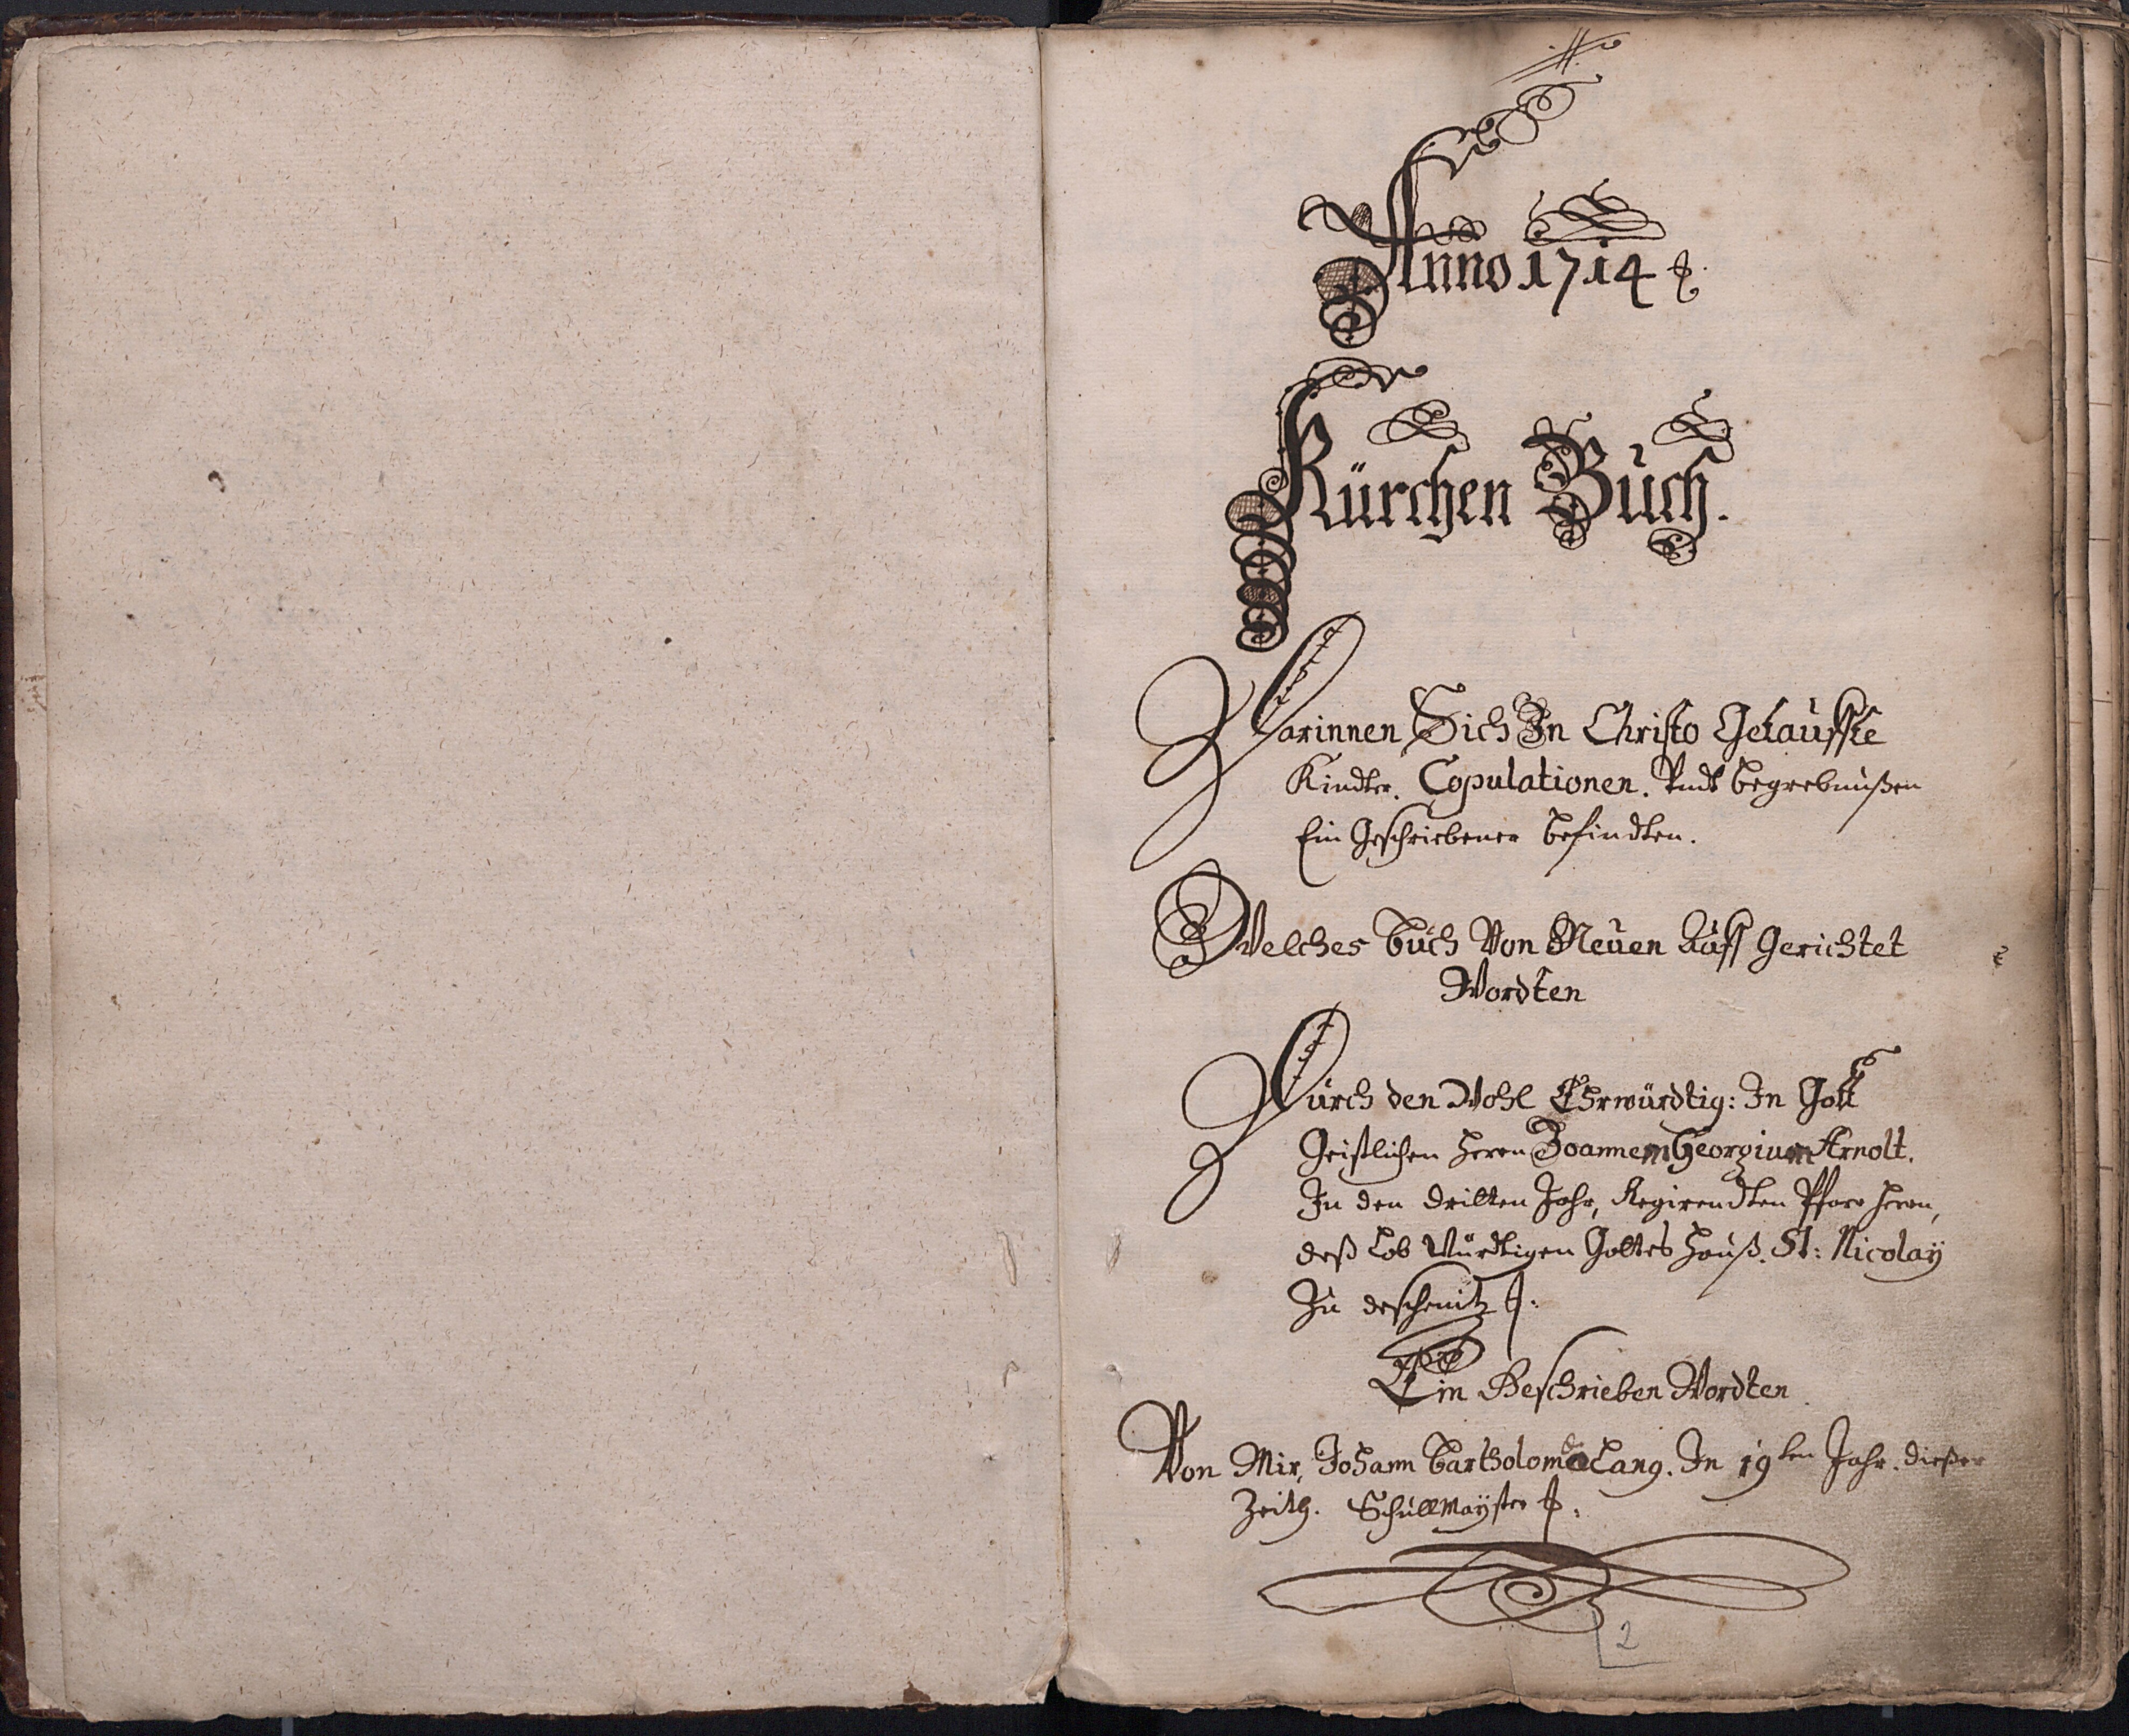 Anno 1714
Kürchen Buch.
Darinnen Sich In Christo Getauffte
Kindter. Copulationen. Undt begrebnußen
Ein Geschriebener befindten.
Welches buch Von Neuen Auff Gerichtet
Wordten
Durch den Wohl Ehrwürdtig: In Gott
Geistlichen Herrn Joannem Georgium Arnolt.
In den dritten Jahr, Regirendten Pfarr Herrn,
deß Lob Würdtigen Gottes Hauß. St: Nicolaÿ
Zu deschenitz
Ein Beschrieben Wordten
Von Mir, Johann Bartholomæ Lang. In 19ten Jahr. dießer
Zeith. Schullmaÿster
2